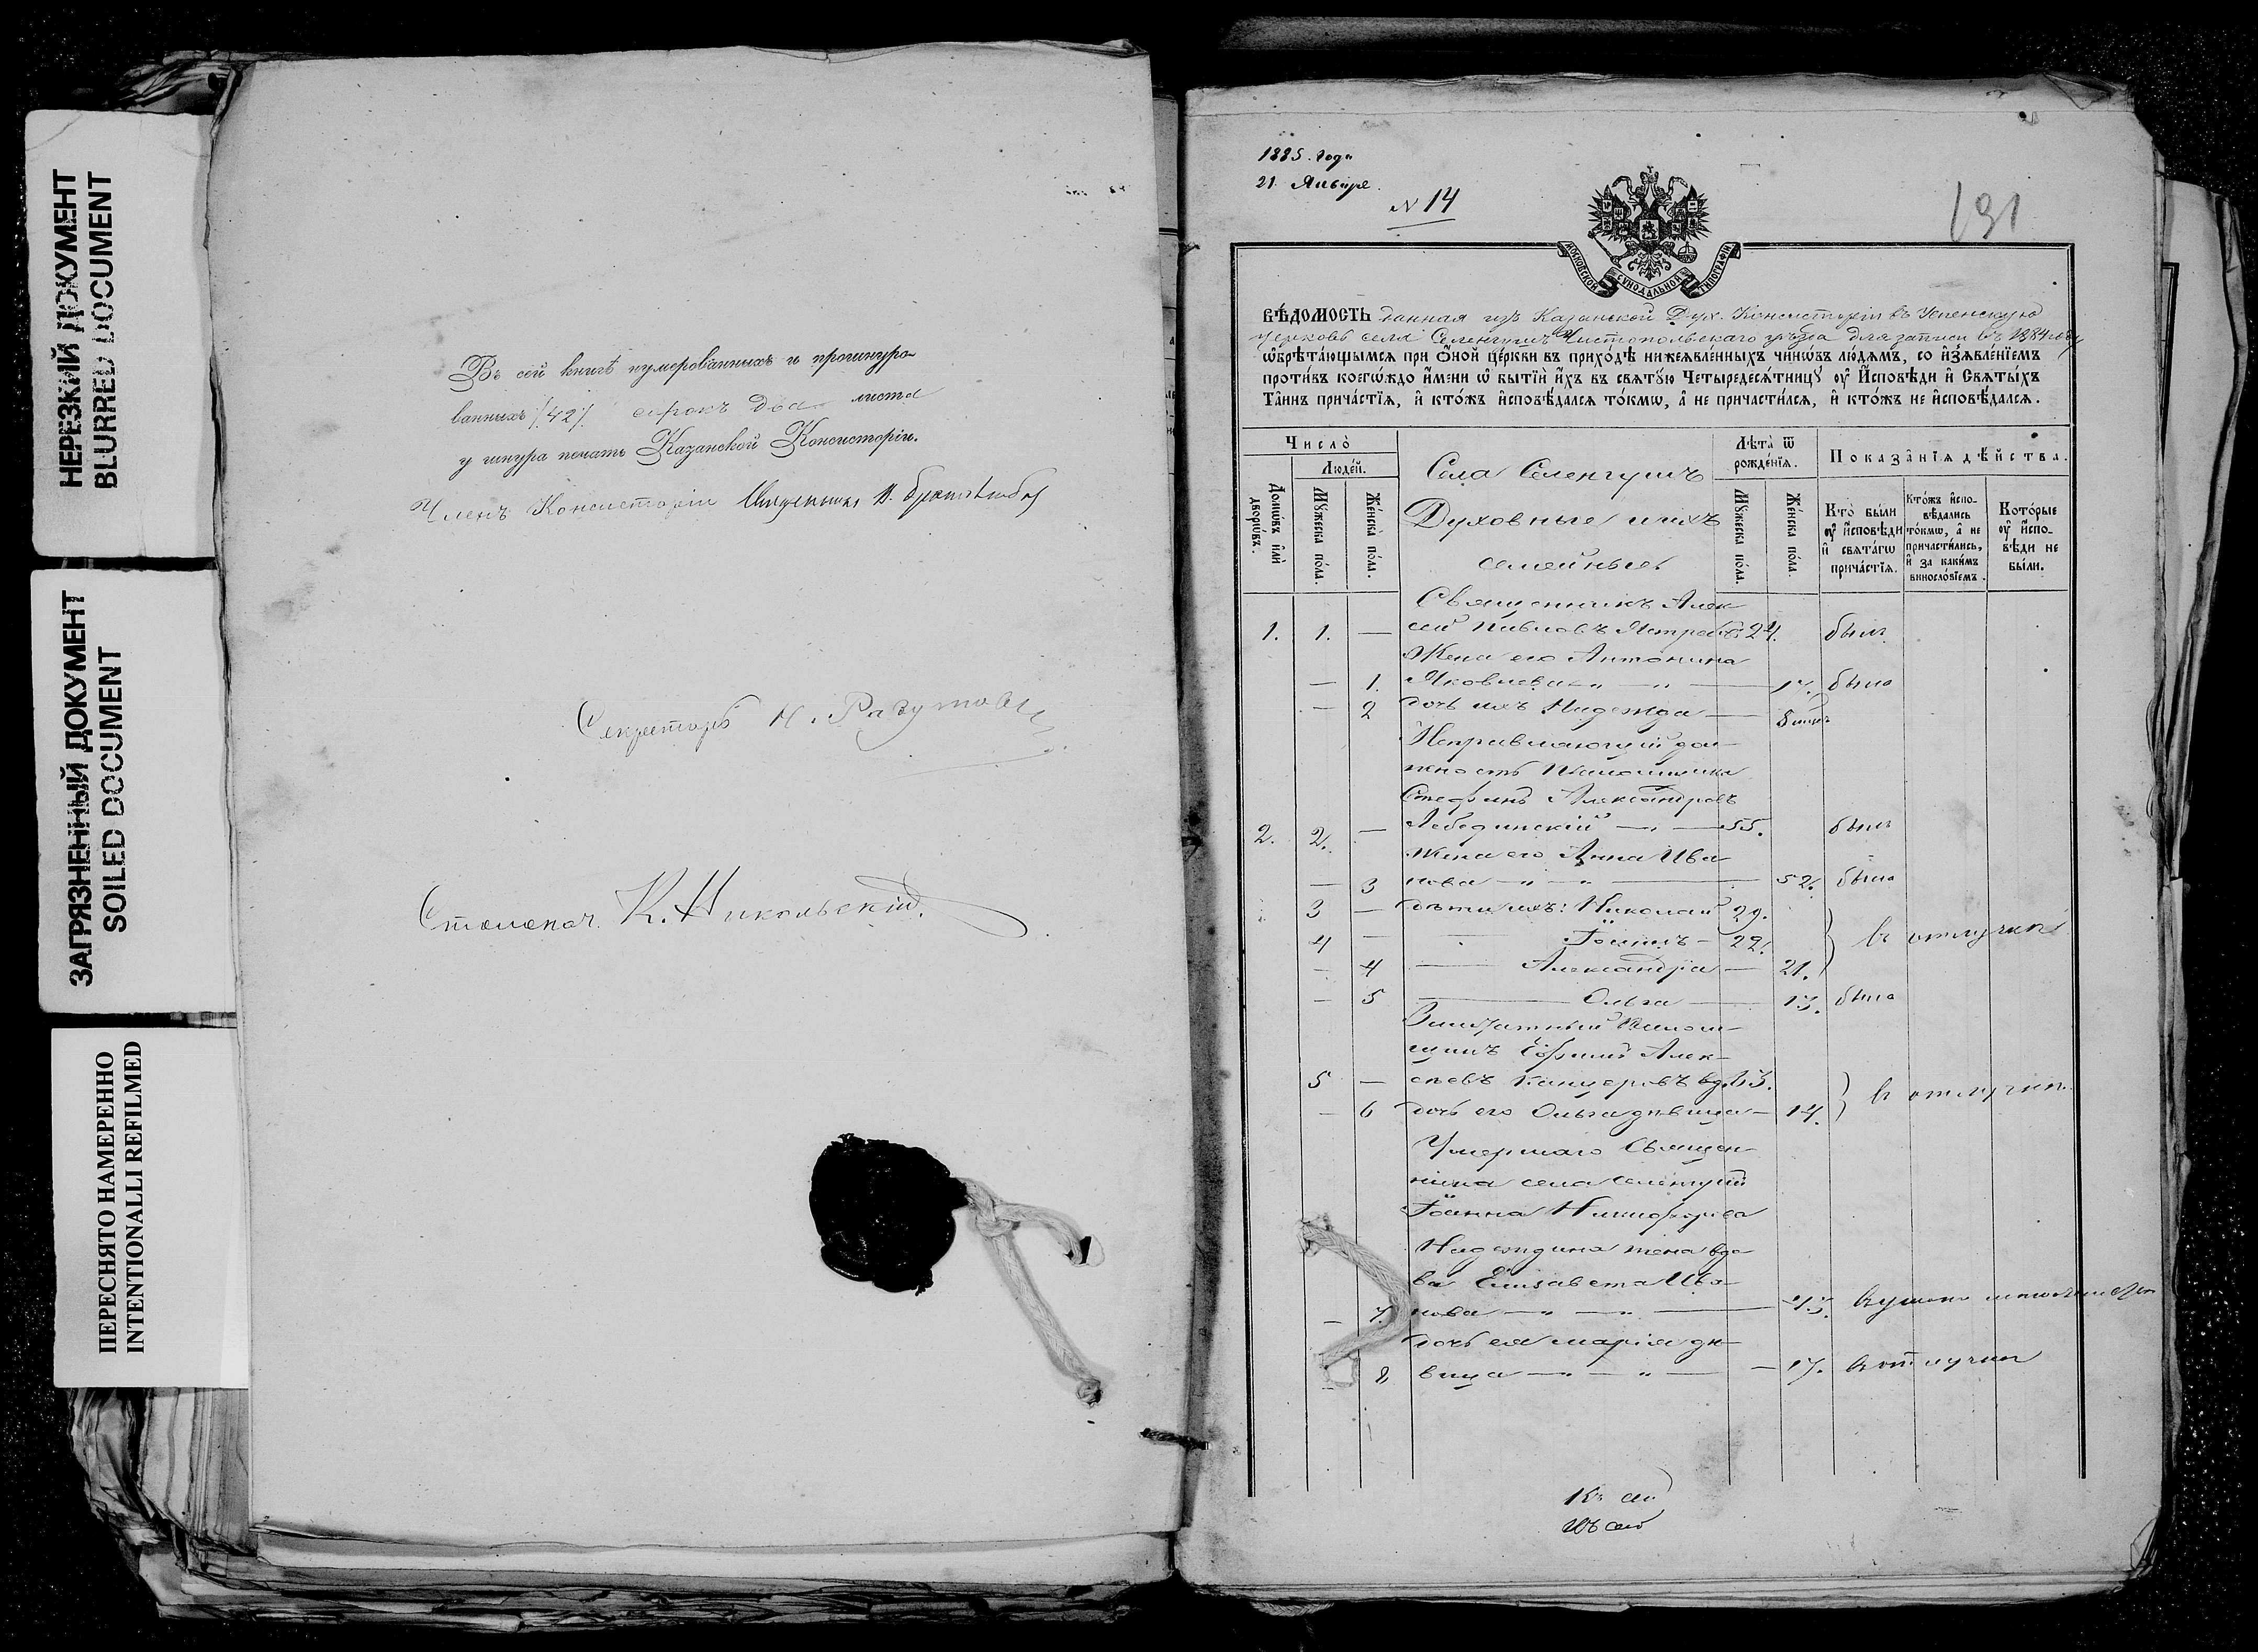 НЕРЕЗКИЙ ДОКУМЕНТ
BLURRED DOCUMENT
ЗАГРЯЗНЕННЫЙ ДОКУМЕНТ
SOILED DOCUMENT
ПЕРЕСНЯТО НАМЕРЕННО
INTENTIONALLI REFILMED
Въ сей книгѣ нумерованныхъ и прошнуро-
ванныхъ /42/. сорокъ два листа
у шнура печать Казанской Консисторіи.
Членъ Консисторіи Священникъ
Секретарь Н. Разумовъ
Столонач. К. Никольскій.
1885. года
21. Января.
№ 14
191
МОСКОВСКОЙ СУНОДАЛЬНОЙ ТИПОГРАФІИ
ВѢДОМОСТЬ данная изъ Казанской Дух. Консисторіи въ Успенскую
церковь села Селенгушъ Чистопольскаго уѣзда для записи въ 1884 году
ѡ҆брѣта́ющымсѧ при ѻ҆ной це́ркви въ прихо́дѣ нижеѧвле́нныхъ чинѡ́въ лю́демъ, со и҆з̾ѧвле́нїемъ
про́тивъ коегѡ́ждо и҆́мени ѡ҆ бытїѝ и҆́хъ въ свѧту́ю Четыредесѧ́тницꙋ ᲂу҆ И҆сповѣди и҆ Свѧты́хъ
Та̑инъ прича́стїѧ, и҆ кто́жъ и҆сповѣ́далсѧ то́кмѡ, а҆ не причасти́лсѧ, и҆ кто́жъ не и҆сповѣ́далсѧ.
Число̀
Людей.
Домѡ́въ и҆лѝ дворѡ́въ.
Мꙋ́жеска по́ла.
Же́нска по́ла.
Села Селенгушъ
Духовные и ихъ
семейные.
Лѣта̀ ѿ рожде́нїѧ.
Мꙋ́жеска по́ла.
Же́нска по́ла.
Показа̑нїѧ дѣ́йства.
Кто̀ были ᲂу҆ и҆сповѣ́ди и҆ свѧта́гѡ прича́стїѧ.
Кто́жъ и҆спо-вѣ́дались то́кмѡ, а҆ не причасти́лись, и҆ за каки́мъ виносло́вїемъ.
Кото́рые ᲂу҆ и҆спо-вѣ́ди не бы́ли.
Священникъ Алек
1. 1. — сѣй Павловъ Ястребовъ 24. былъ
Жена его Антонина
— 1. Яковлева — " — " — 17. была
— 2 дочь ихъ Надежда — 8 мѣс
Исправляющій дол-
жность Псаломщика
Стефанъ Александровъ
2. 2. — Лебединскій — " — 55. былъ
жена его Анна Ива
— 3 нова — " — " — 52. была
3 — дѣти ихъ: Николай 29.
4 — Іоаннъ — 22. } въ отлучкѣ
— 4 — Александра — 21.
— 5 — Ольга — 13. была
Заштатный Псалом-
щикъ Ефимъ Алек-
5 — сѣевъ вд. 43. } въ отлучкѣ.
— 6 дочь его Ольга дѣвица — 14.
Умершаго Священ-
ника села Селенгушъ
Іоанна Никифорова
Надеждина жена вдо-
ва Елизавета Ива-
— 7. нова — " — " —
дочь ея Марія дѣ-
8 вица — " — " — 17. въ отлучкѣ